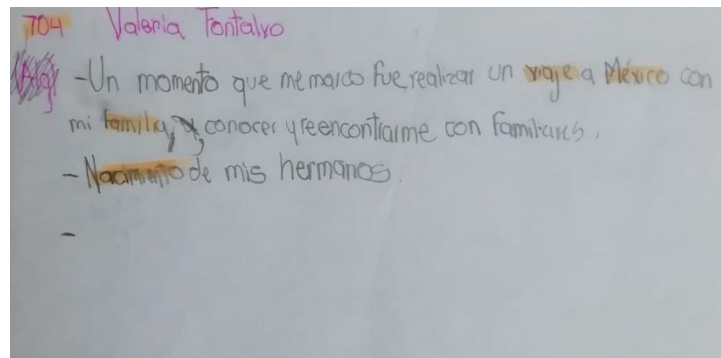 704 Valeria Fontalvo
-Un momento que me marco fue realizar un viaje a México con
mi familia, conocer y reencontrarme con familiares.
-Nacimiento de mis hermanos.
-